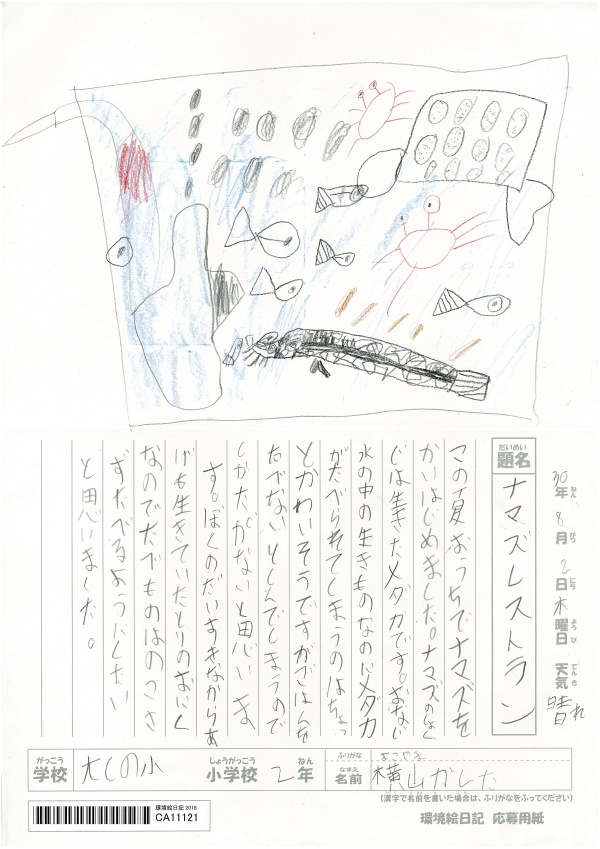 30年ねん 8月がつ 2日にち 木曜日ようび 天気てんき 晴れ
だいめい
題名 ナマズレストラン
この夏おうちでナマズを
かいはじめました。ナマズのしょく
じは生きたメダカです。おなじ
水の中の生きものなのにメダカ
がたべられてしまうのはちょっ
とかわいそうですがごはんを
たべないとしんでしまうので
しかたがないと思いま
す。ぼくのだいすきなからあ
げも生きていたとりのおにく
なのでたべものはのこさ
ずたべるようにしたい
と思いました。
がっこう しょうがっこう ねん ふりがな よこやま
学校 小学校 2年 なまえ 名前 横山
(漢字で名前を書いた場合は、ふりがなをふってください)
環境絵日記 2018
CA11121
環境絵日記 応募用紙